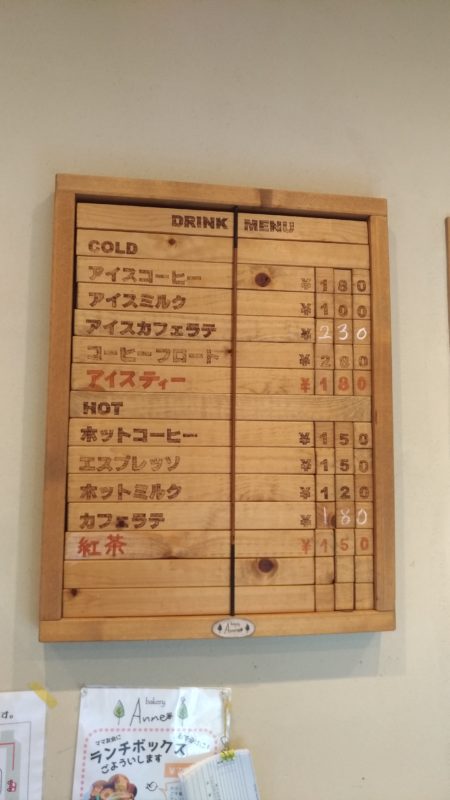 DRINK MENU
COLD
アイスコーヒー ¥180
アイスミルク ¥100
アイスカフェラテ ¥230
コーヒーフロート ¥280
アイスティー ¥180
HOT
ホットコーヒー ¥150
エスプレッソ ¥150
ホットミルク ¥120
カフェラテ ¥180
紅茶 ¥150
bakery
Anne
す。
bakery
Anne
ママ友会に
ランチボックス
ごようい​します